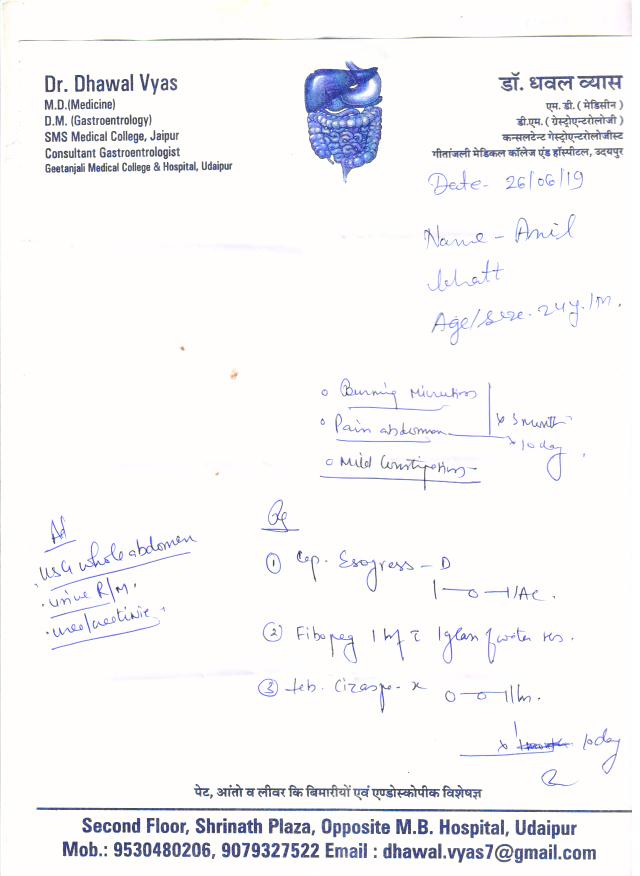 Dr. Dhawal Vyas
M.D.(Medicine)
D.M. (Gastroentrology)
SMS Medical College, Jaipur
Consultant Gastroentrologist
Geetanjali Medical College & Hospital, Udaipur
डॉ. धवल व्यास
एम. डी. ( मेडिसीन )
डी.एम. ( ग्रेस्ट्रोएन्टरोलोजी )
कन्सलटेन्ट गेस्ट्रोएन्टरोलोजीस्ट
गीतांजली मेडिकल कॉलेज एंड हॉस्पीटल, उदयपुर
Date - 26/06/19
Name - Anil
bhatt
Age/sex. 24y./m.
Burning Micturition
Pain abdomen
x 10 day
Mild Constipation
Ad
USG whole abdomen
urine R/M.
urea/creatinine
Rx
① Cap. Esogress - D
1-0-1/AC.
② Fibopeg 1 glass of water
③ Tab.
0-0-1
x 10 day
पेट, आंतो व लीवर कि बिमारीयों एवं एण्डोस्कोपीक विशेषज्ञ
Second Floor, Shrinath Plaza, Opposite M.B. Hospital, Udaipur
Mob.: 9530480206, 9079327522 Email : dhawal.vyas7@gmail.com